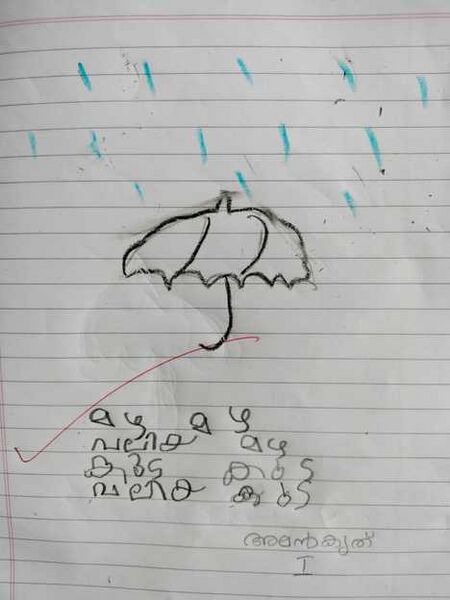 മഴ മഴ
വലിയ മഴ
കുട കുട
വലിയ കുട
അലൻകൃത്
I